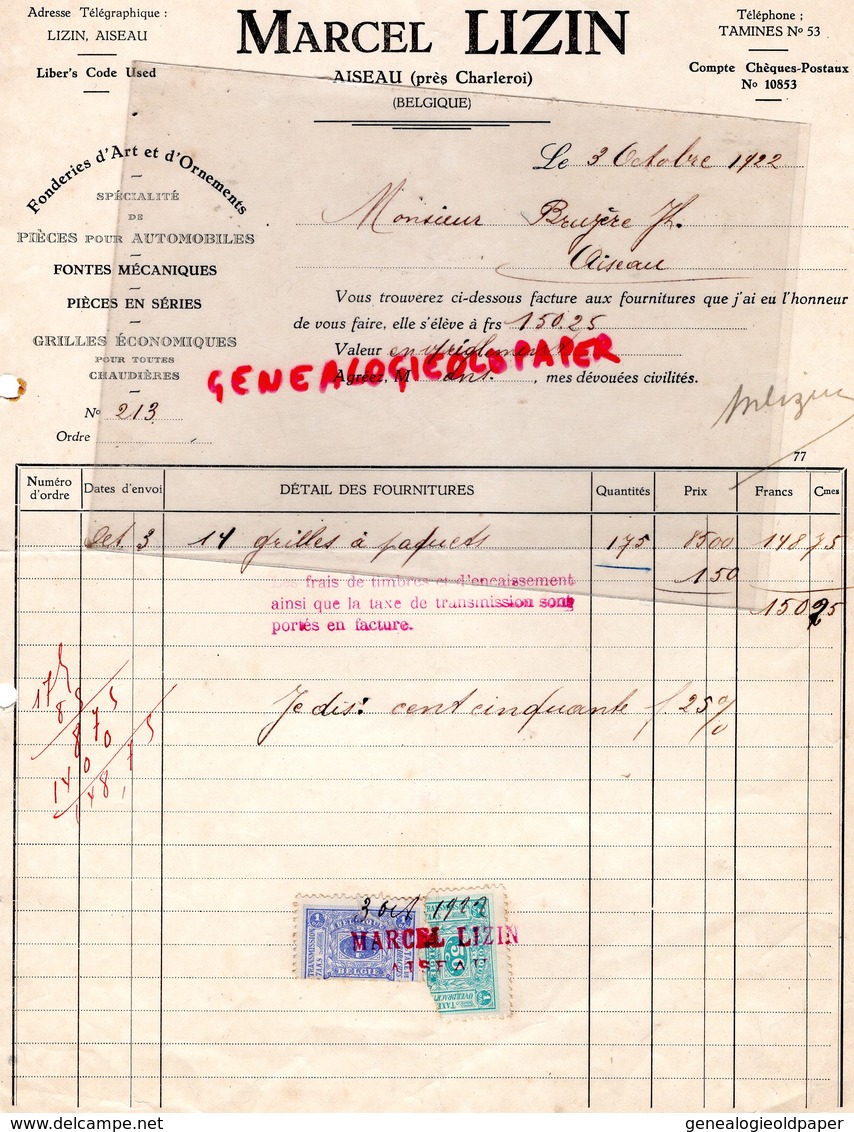 Adresse Télégraphique :
LIZIN, AISEAU
Liber's Code Used
MARCEL LIZIN
AISEAU (près Charleroi)
(BELGIQUE)
Téléphone :
TAMINES No 53
Compte Chèques-Postaux
No 10853
Fonderies d'Art et d'Ornements
SPÉCIALITÉ
DE
PIÈCES POUR AUTOMOBILES
FONTES MÉCANIQUES
PIÈCES EN SÉRIES
GRILLES ÉCONOMIQUES
POUR TOUTES
CHAUDIÈRES
No 213
Ordre
Le 3 Octobre 1922
Monsieur Bruyère Jh.
Aiseau
Vous trouverez ci-dessous facture aux fournitures que j'ai eu l'honneur
de vous faire, elle s'élève à frs 150.25
Valeur en règlement
Agréez, M ont. , mes dévouées civilités.
GENEALOGIEOLDPAPER
MLizin
77
Numéro d'ordre Dates d'envoi DÉTAIL DES FOURNITURES Quantités Prix Francs Cmes
Oct 3 14 grilles à paquets 175 8500 148 75
150
150 25
Les frais de timbres et d'encaissement
ainsi que la taxe de transmission sont
portés en facture.
175
85
875
1400
148,75
Je dis: cent cinquante f 25 %
3 oct 1922
MARCEL LIZIN
AISEAU
BELGIQUE
BELGIË
TRANSMISSION
TAXE
OVERDRACHT
delcampe.net
genealogieoldpaper